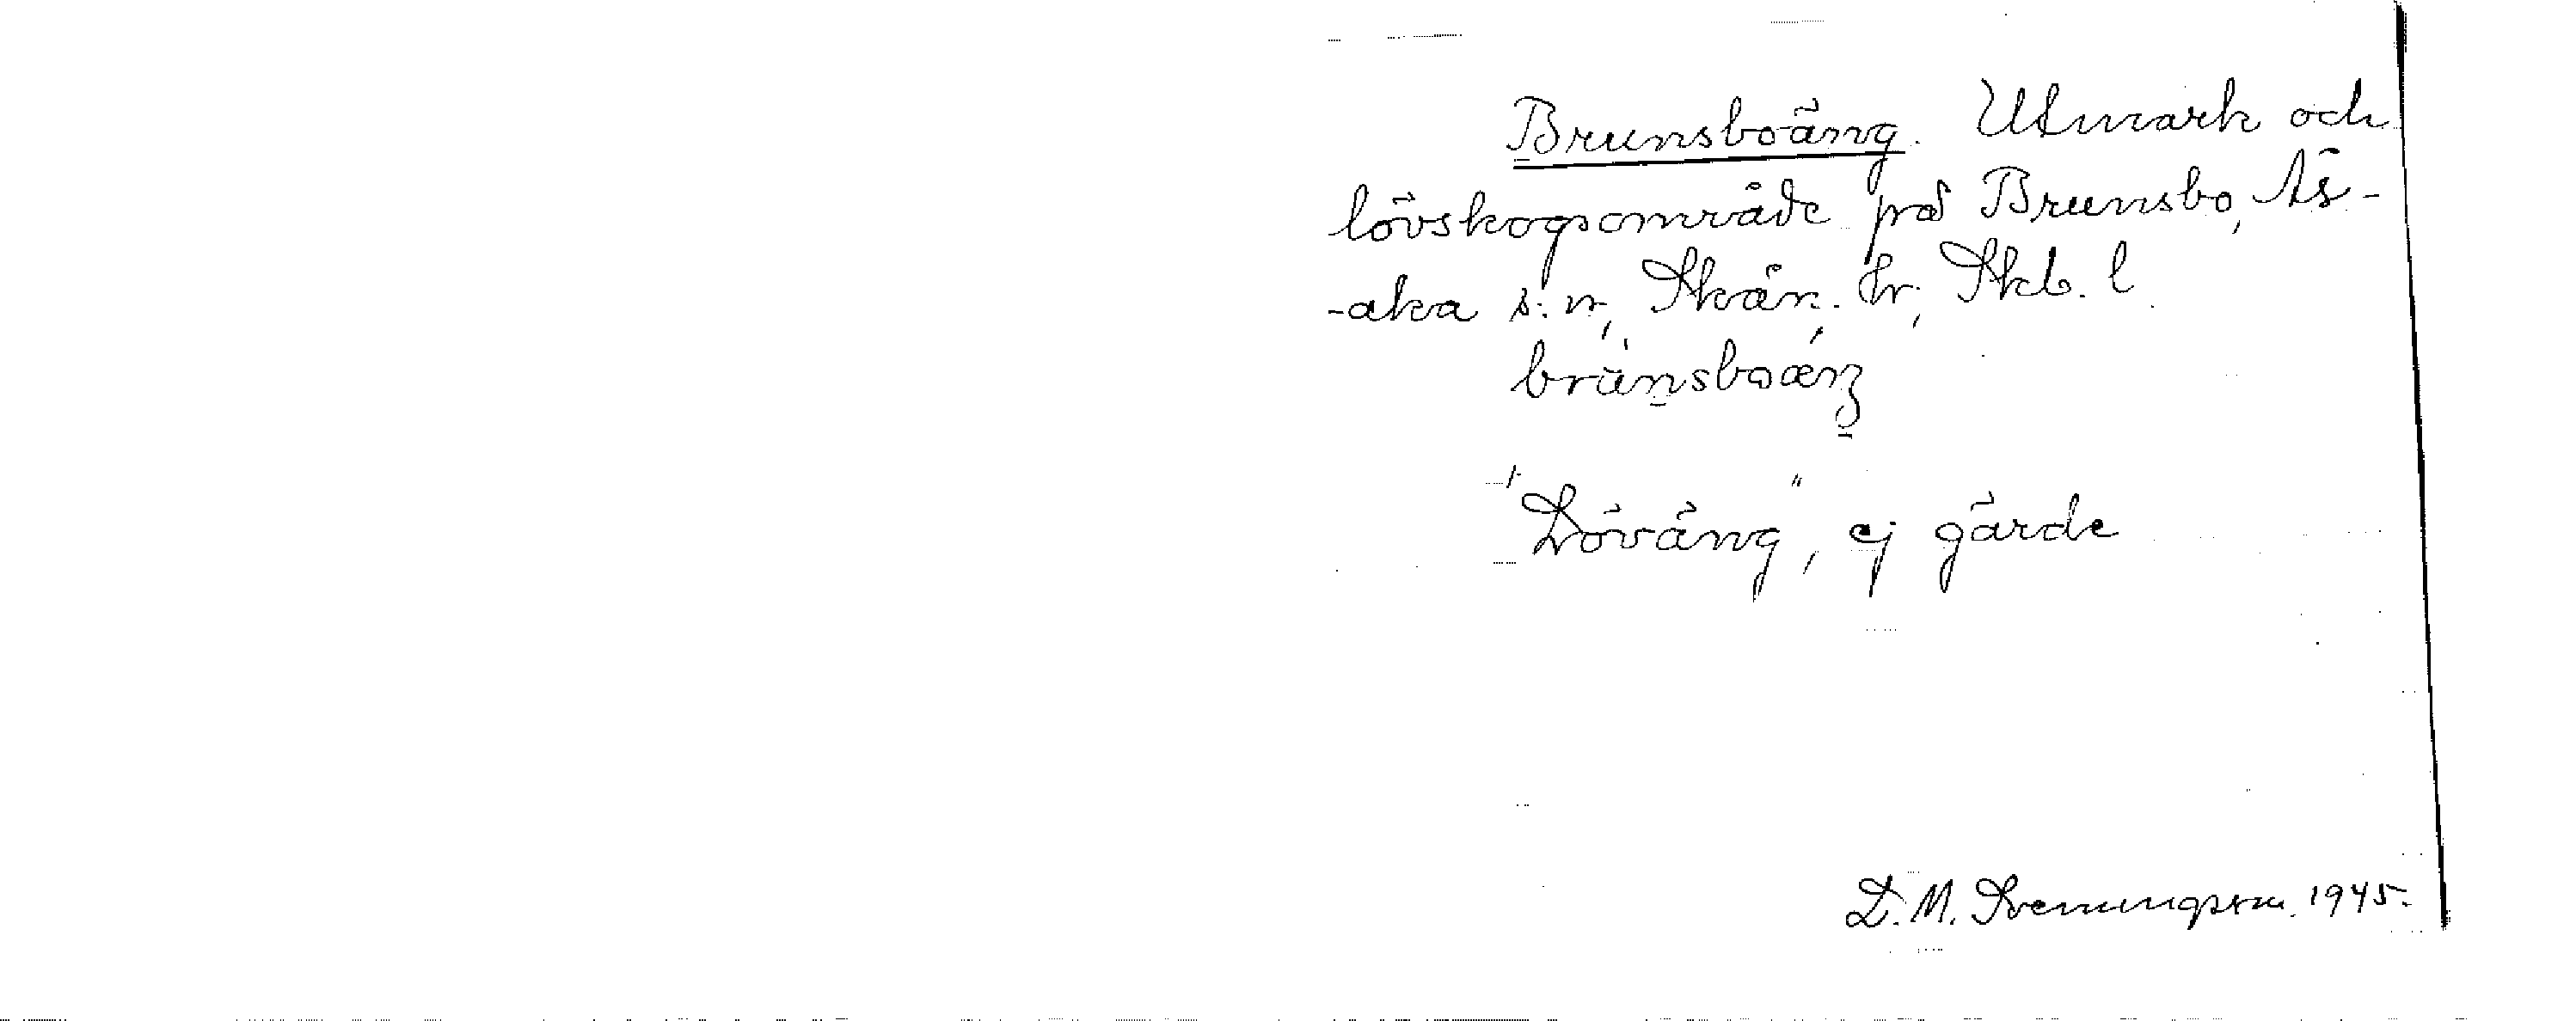 Brunsboäng. Utmark och
lövskogsområde på Brunsbo, Ås-
-aka s:n, Skån. hr, Skb. l
brunsboäŋ
"Löväng", ej gärde
D. M. Svenungsson. 1945.